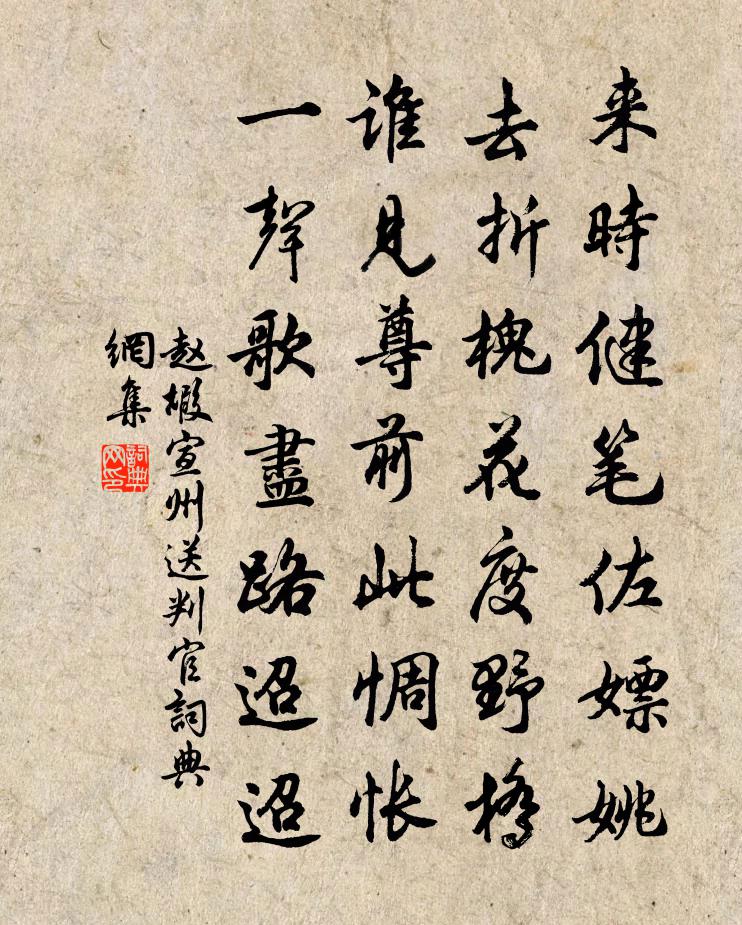 来時健笔佐嫖姚
去折槐花度野橋
谁見尊前此惆怅
一聲歌盡路迢迢
赵嘏宣州送判官詞典
網集
詞典
网印